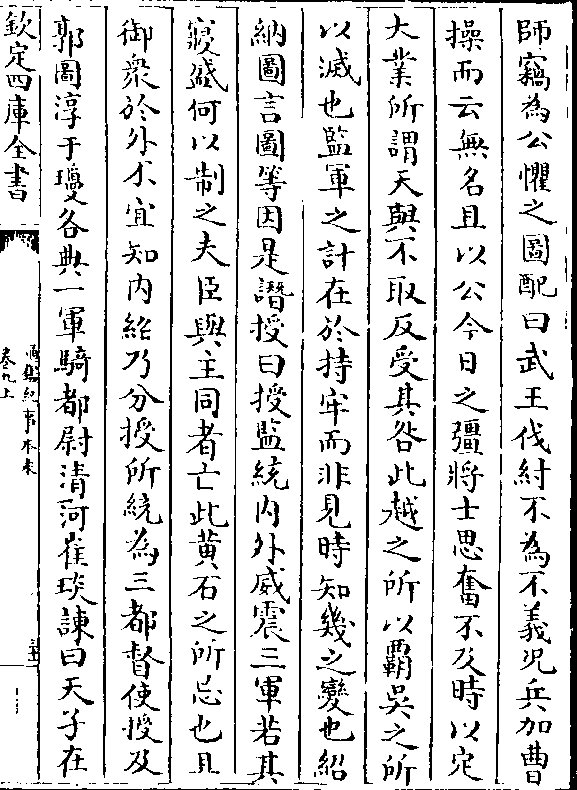 師竊為公懼之圖配曰武王伐紂不為不義况兵加曹
操而云無名且以公今日之彊將士思奮不及時以定
大業所謂天與不取反受其咎此越之所以覇吳之所
以滅也監軍之計在於持牢而非見時知幾之變也紹
納圖言圖等因是譖授曰授監統内外威震三軍若其
寖盛何以制之夫臣與主同者亡此黄石之所忌也且
御衆於外不宜知内紹乃分授所統為三都督使授及
郭圖淳于瓊各典一軍騎都尉清河崔琰諫曰天子在
欽定四庫全書
通鑑紀事本末
卷九上